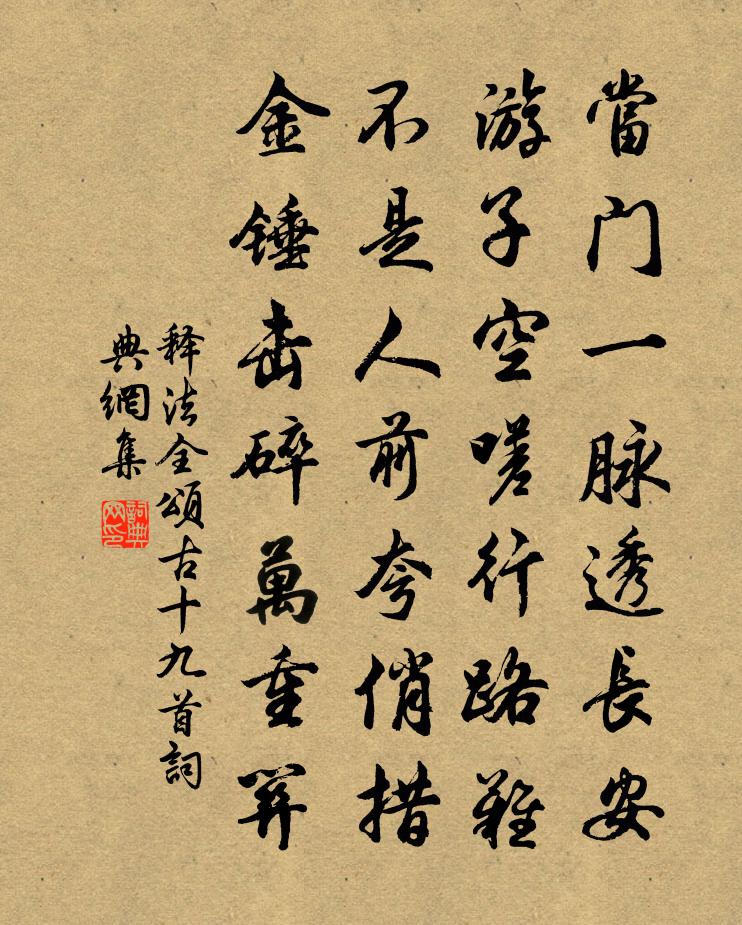 當門一脉透長安
游子空嗟行路難
不是人前夸俏措
金锤击碎萬重關
释法全頌古十九首詞
典網集
詞典
网印